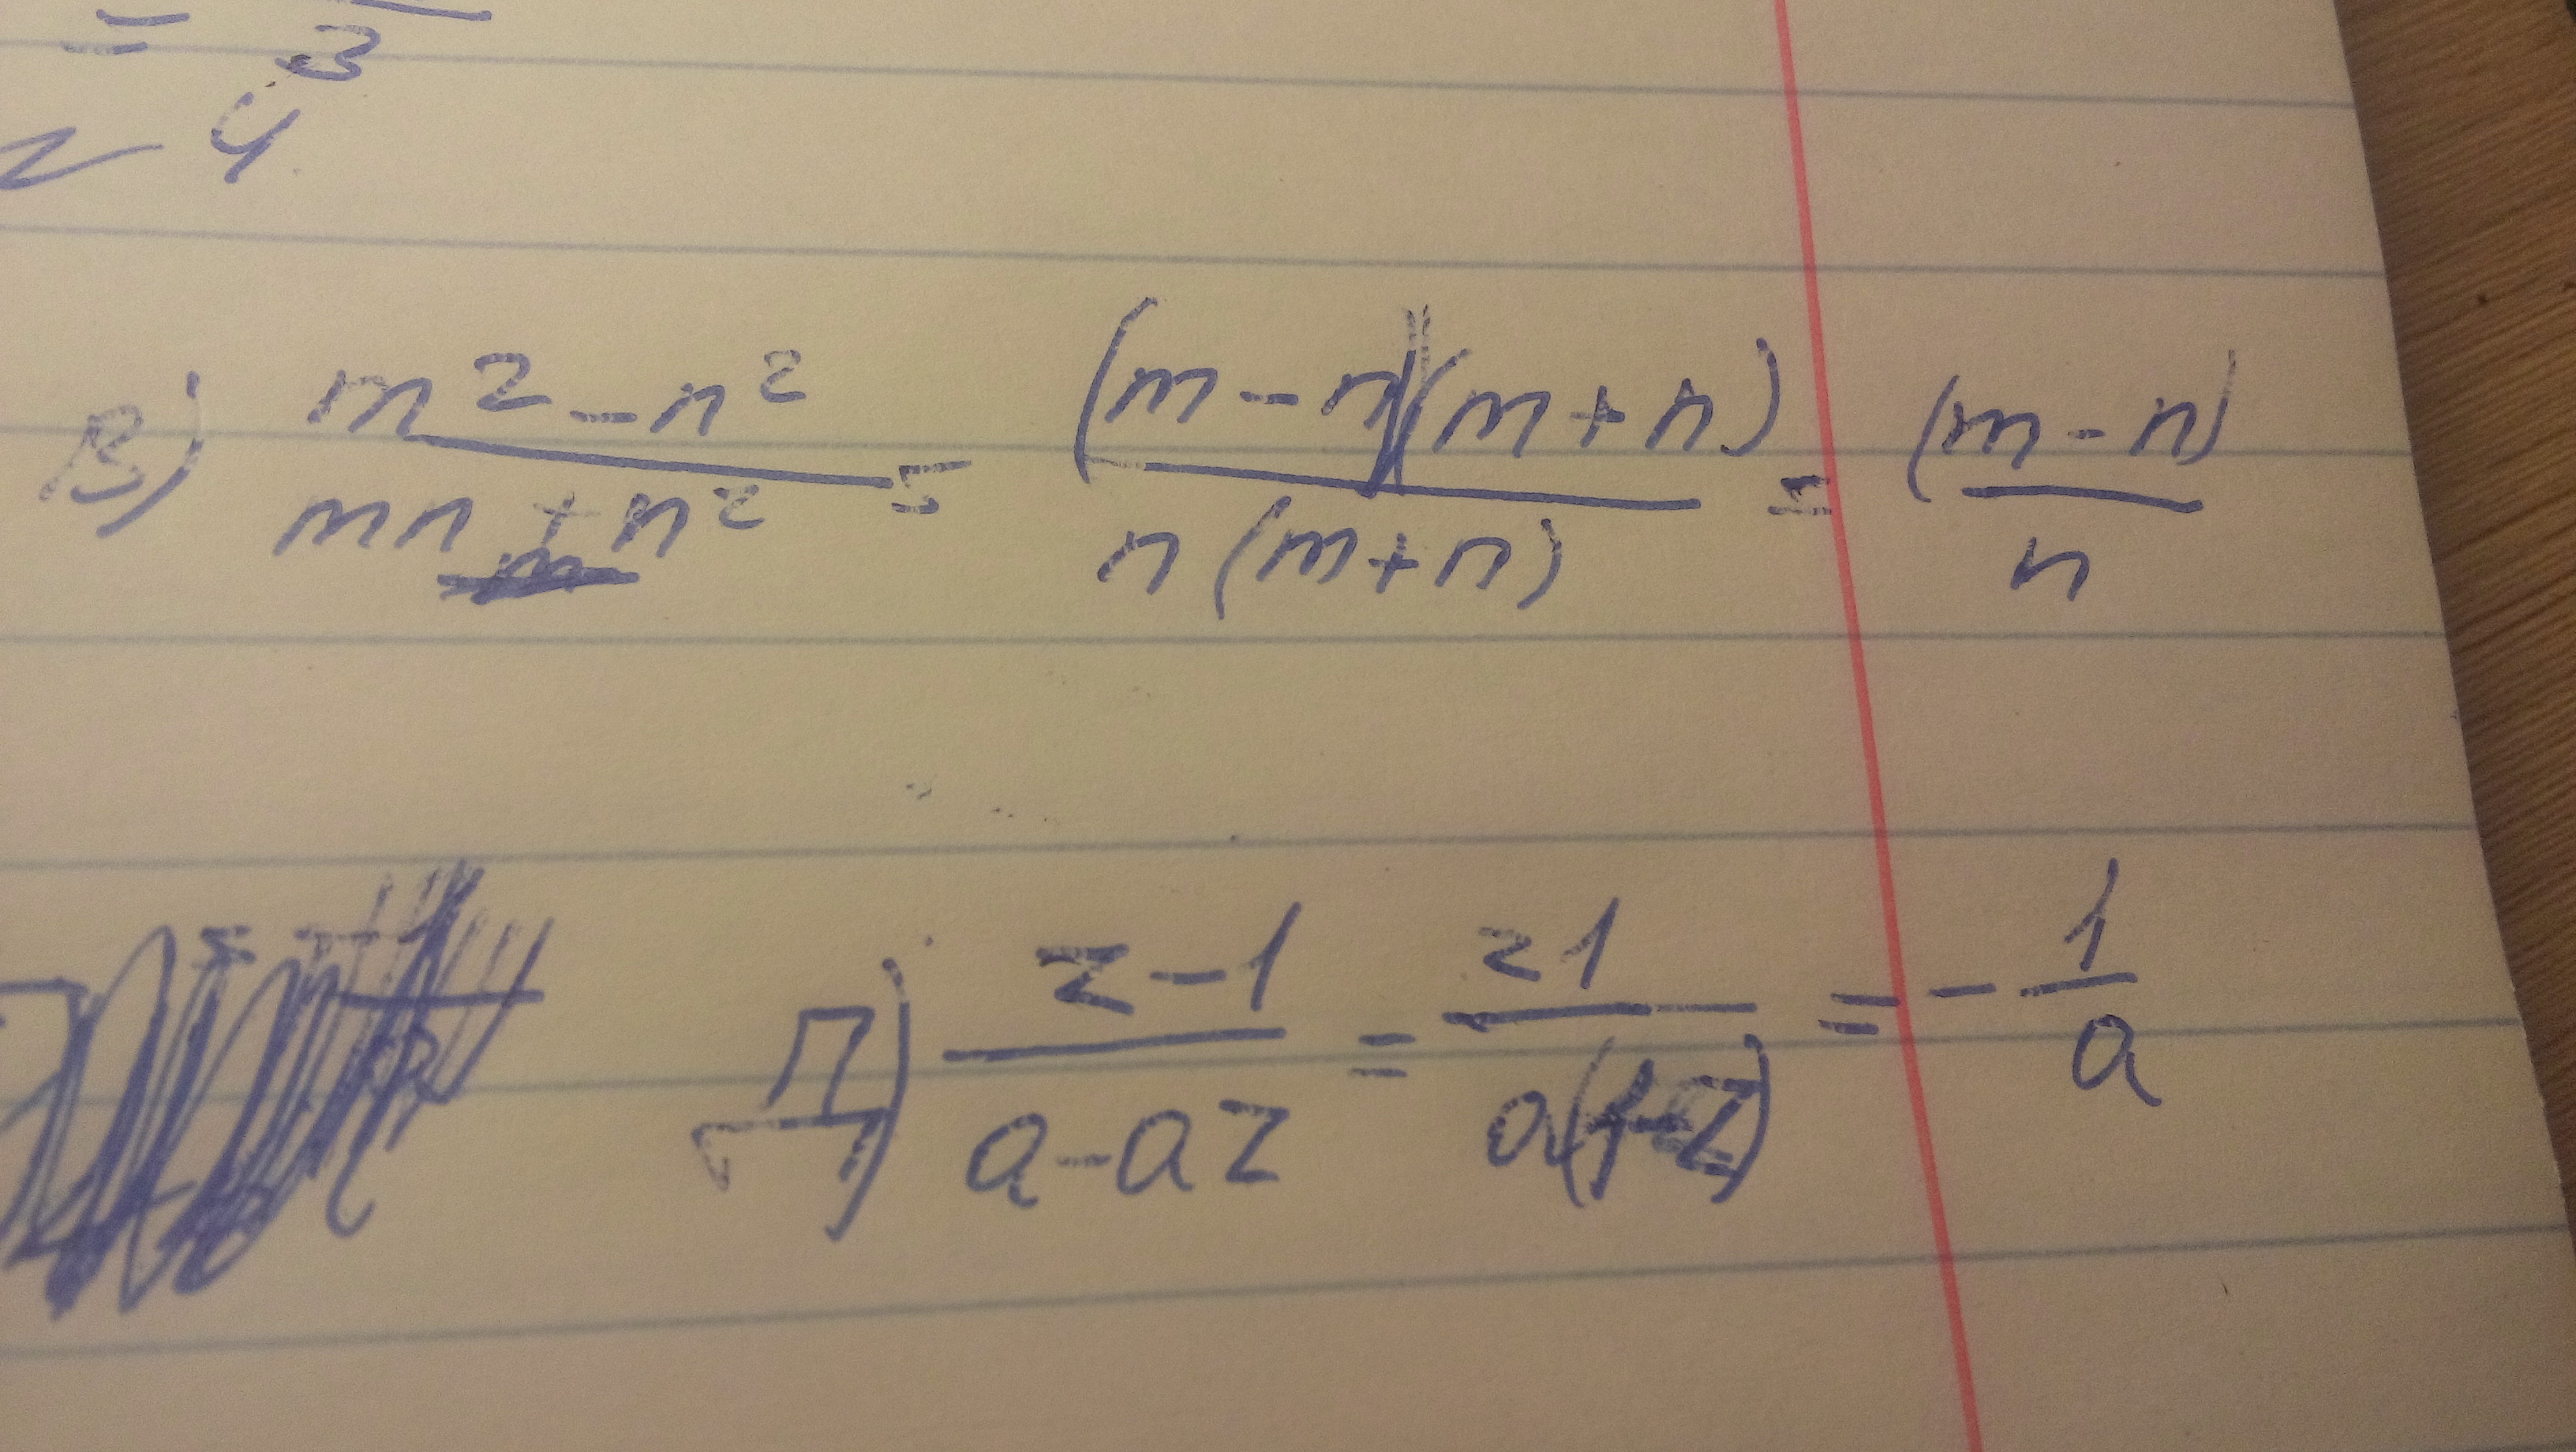 = 3
4
В) m² - n² / mn + n² = (m - n)(m + n) / n(m + n) = (m - n) / n
Д) z - 1 / a - az = z 1 / a(1-z) = - 1 / a